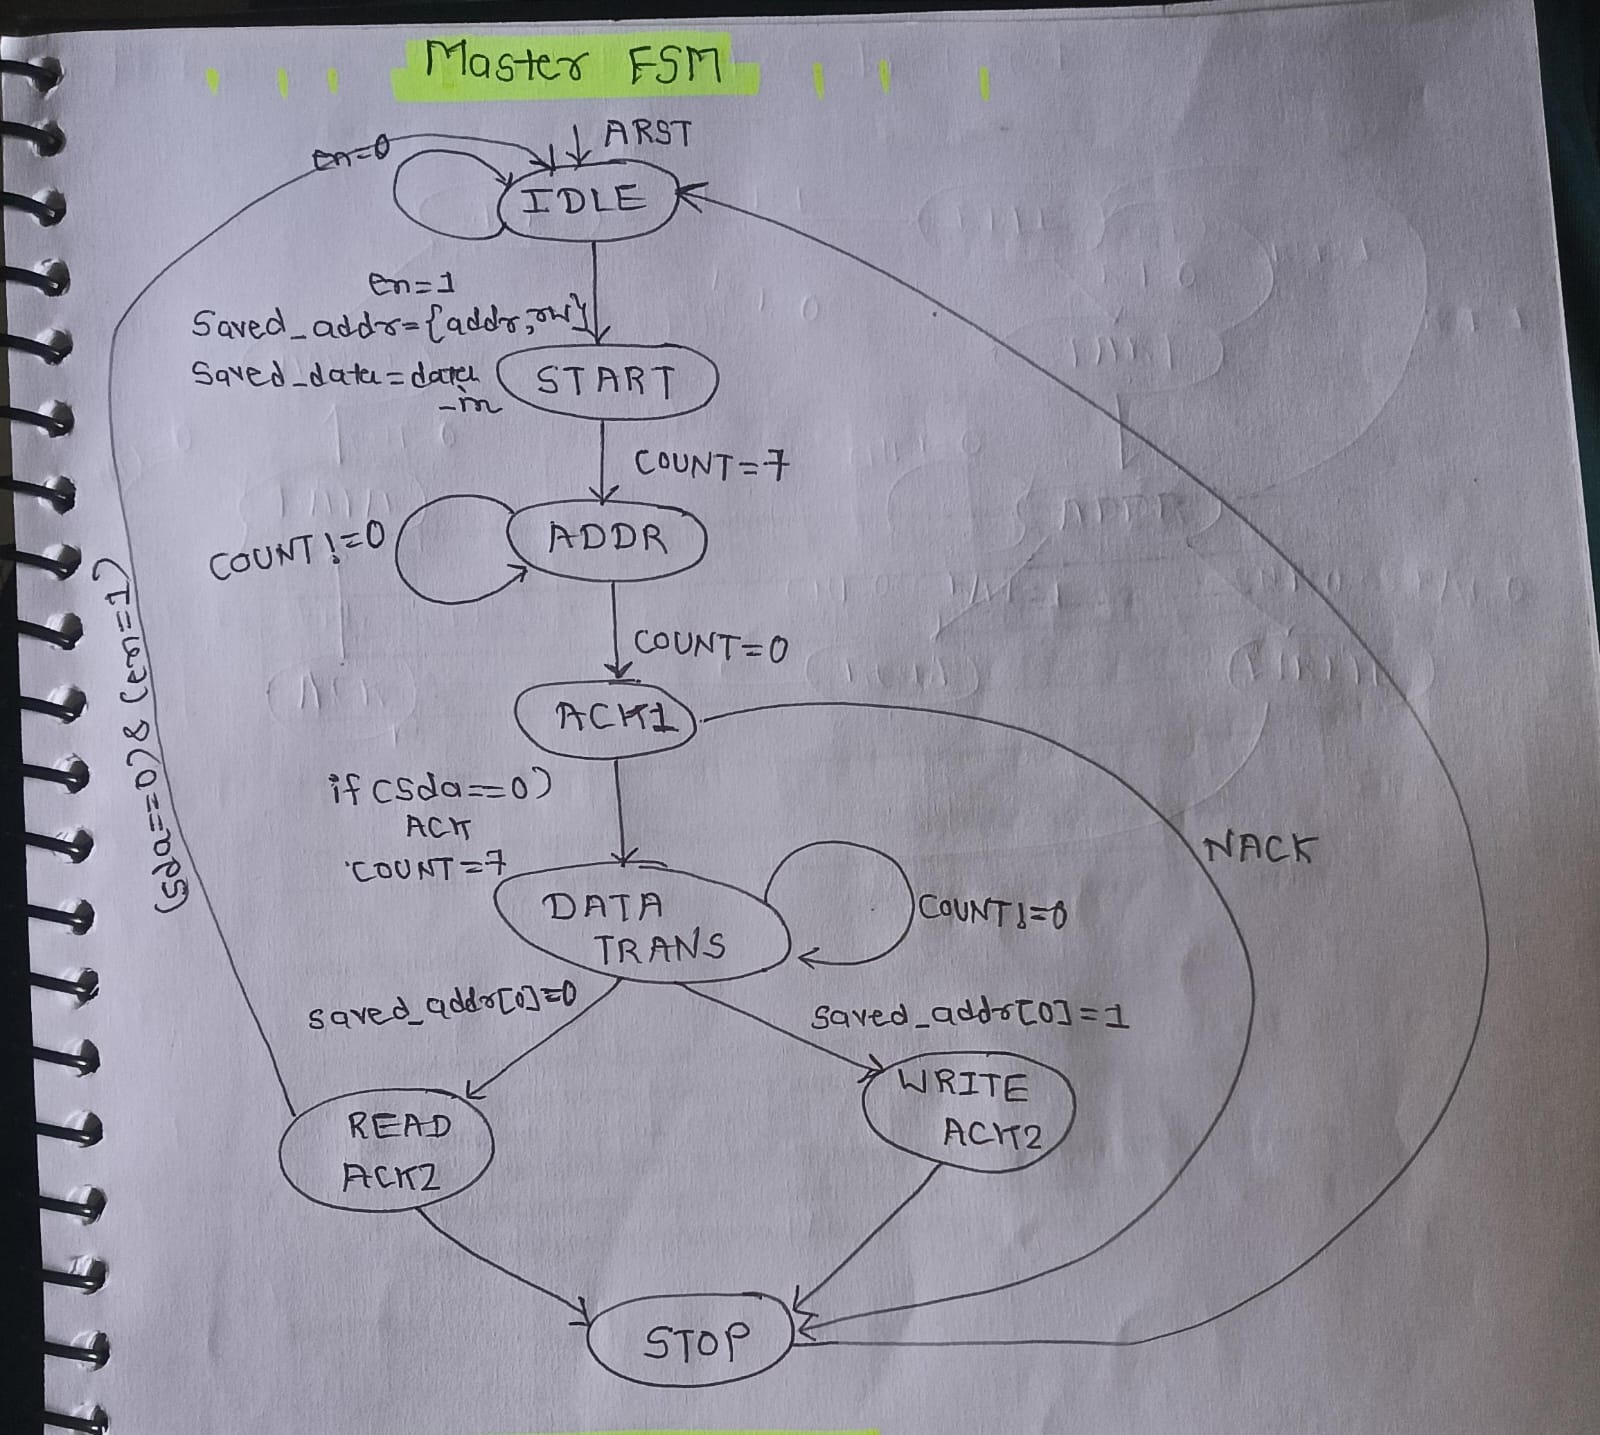 Master FSM
ARST
en=0
IDLE
en=1
Saved_addr={addr,rw}
Saved_data=data
_in
START
COUNT=7
ADDR
COUNT!=0
COUNT=0
ACK1
if(sda==0)
ACK
COUNT=7
NACK
DATA
TRANS
COUNT!=0
(sda==0)&(en=1)
saved_addr[0]=0
saved_addr[0]=1
READ
ACK2
WRITE
ACK2
STOP